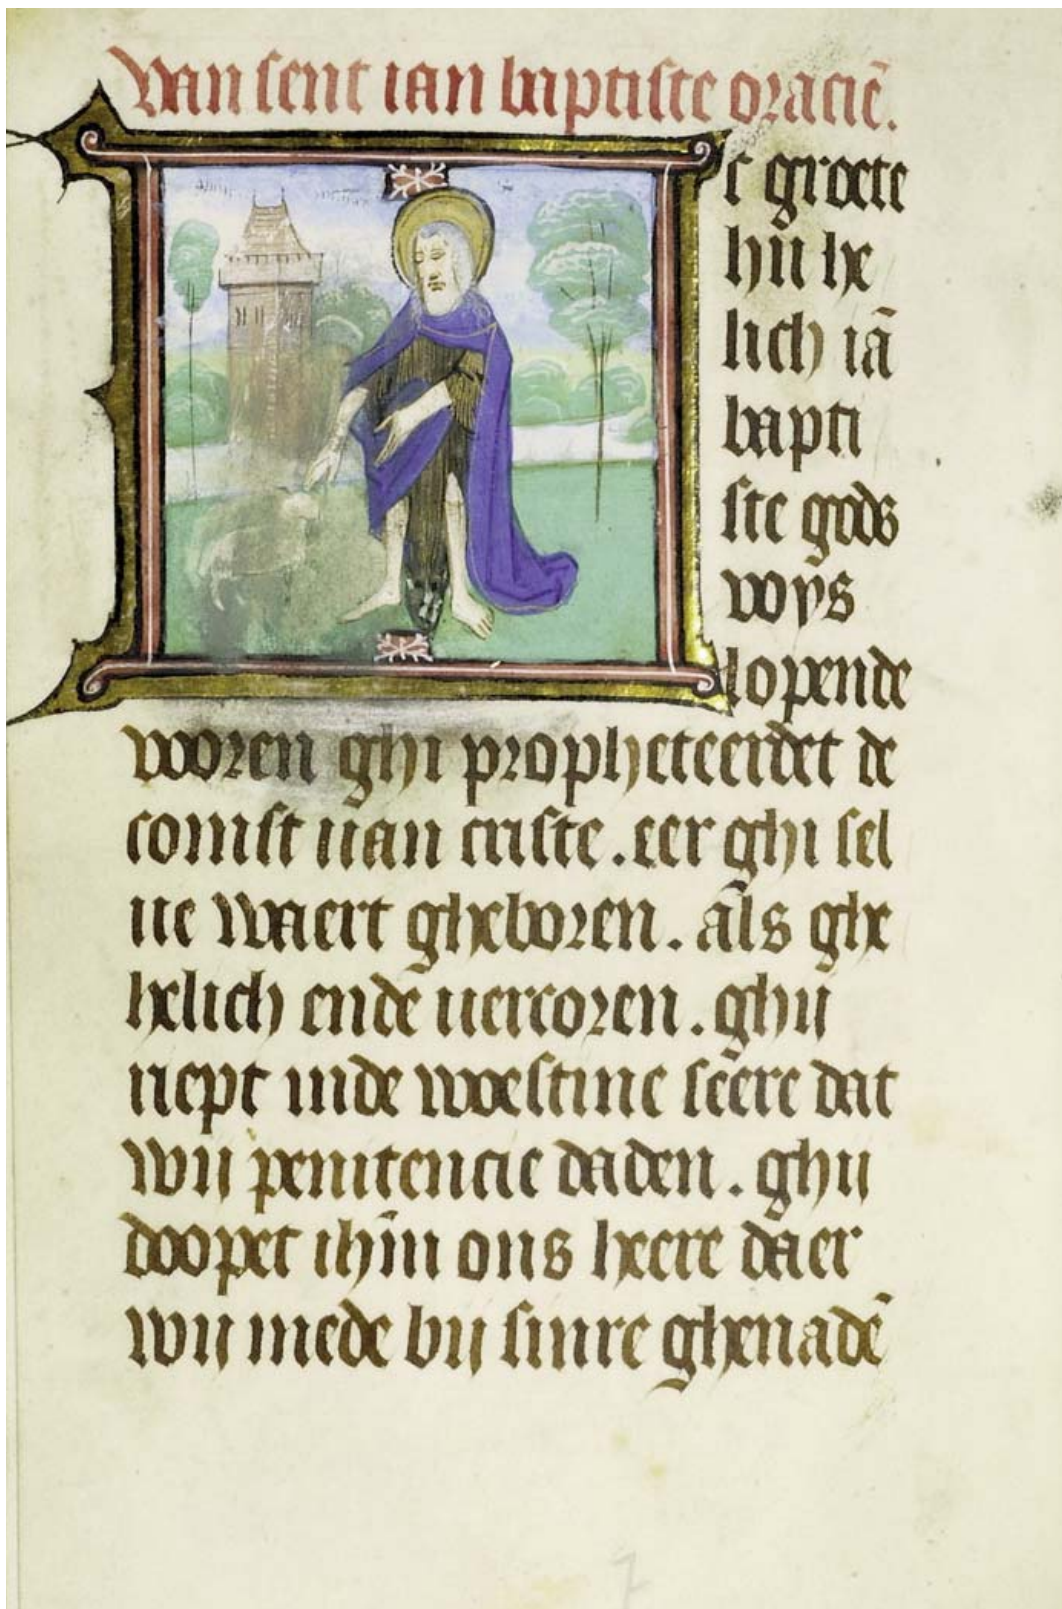 van sent ian baptiste oracie̅.
Ic groete
hu he
lich ia̅
bapti
ste gods
voys
lopende
woren ghi propheteerdet de
comst uan criste. eer ghi sel
ue waert gheboren. als ghe
helich ende uercoren. ghij
riept inde woestine seere dat
wij penitencie daden. ghij
doopet ihm̅ ons heere daer
wij mede bij sinre ghenade̅